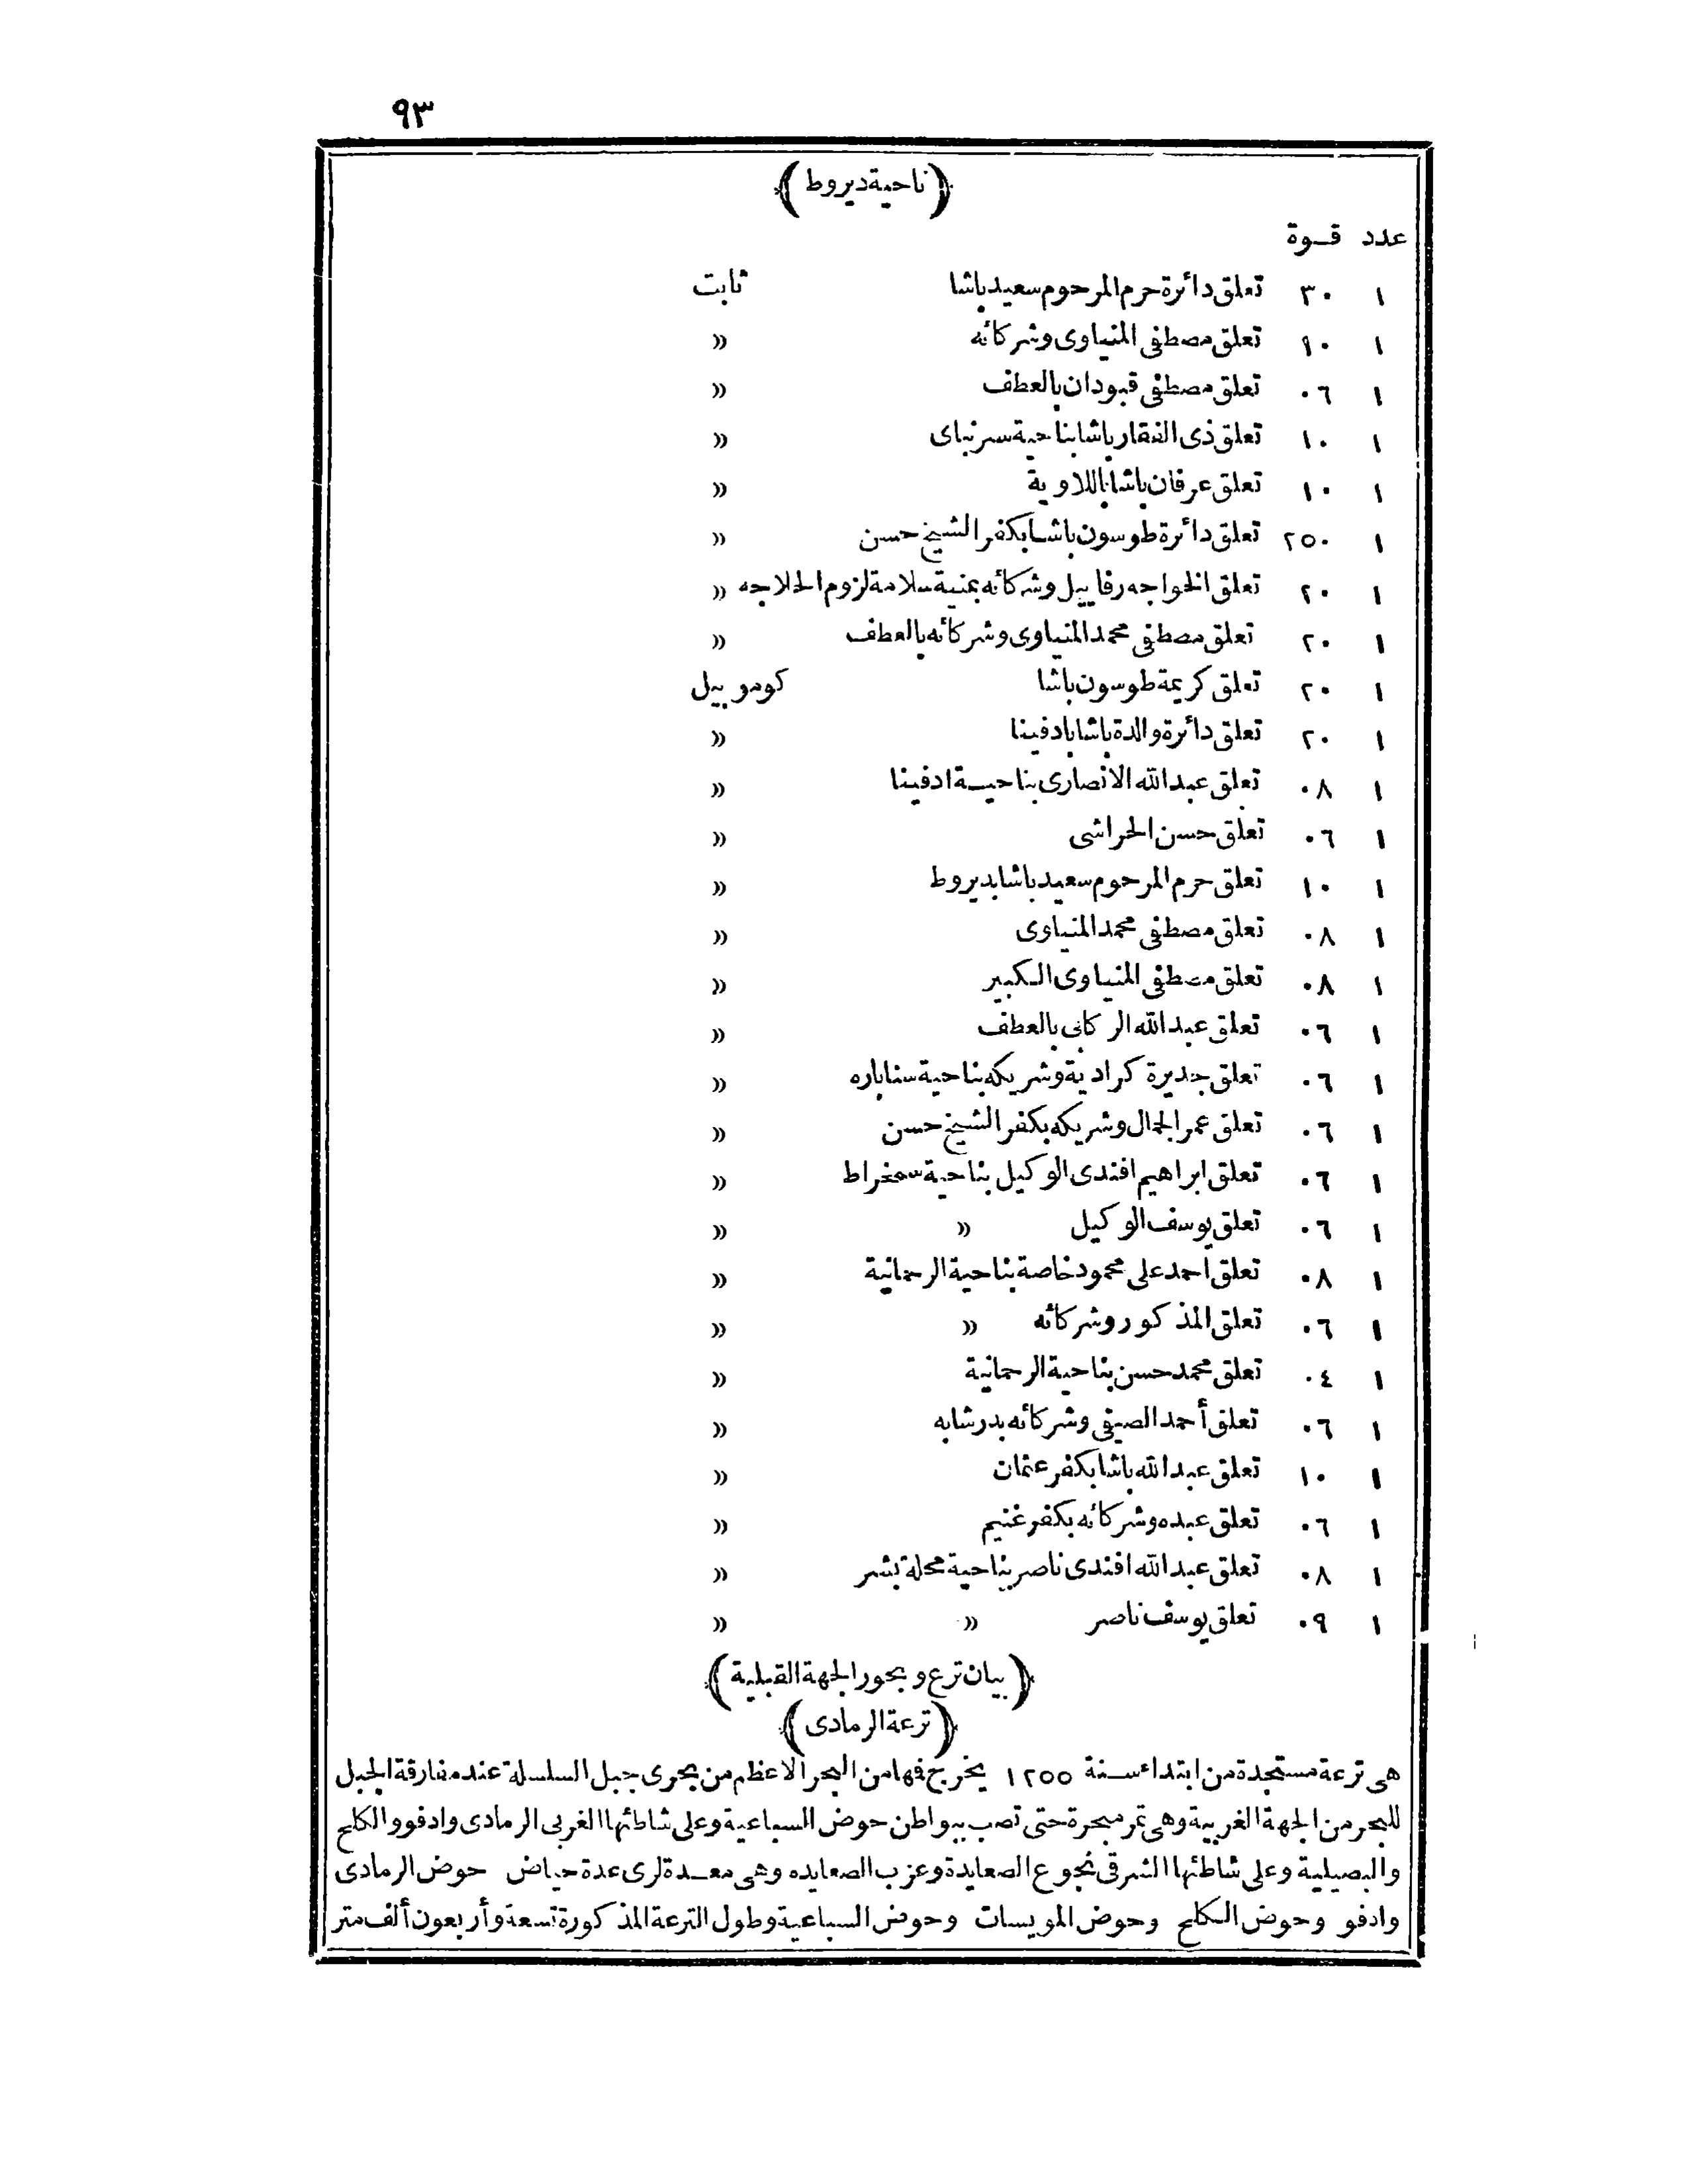 ٩٣
(ناحية ديروط)
عدد قوة
١ ٣٠ تعلق دائرة حرم المرحوم سعيد باشا ثابت
١ ١٠ تعلق مصطفى المنياوى وشركائه »
١ ٠٦ تعلق مصطفى قبودان بالعطف »
١ ١٠ تعلق ذى الفقار باشا بناحية سرنباى »
١ ١٠ تعلق عرفان باشا باللاوية »
١ ٢٥٠ تعلق دائرة طوسون باشا بكفر الشيخ حسن »
١ ٢٠ تعلق الخواجه رفاييل وشركائه بمنية سلامة لزوم الحلاجه »
١ ٢٠ تعلق مصطفى محمد المنياوى وشركائه بالعطف »
١ ٢٠ تعلق كريمة طوسون باشا كوموبيل
١ ٢٠ تعلق دائرة والدة باشا بادفينا »
١ ٠٨ تعلق عبد الله الانصارى بناحية ادفينا »
١ ٠٦ تعلق حسن الحراشى »
١ ١٠ تعلق حرم المرحوم سعيد باشا بديروط »
١ ٠٨ تعلق مصطفى محمد المنياوى »
١ ٠٨ تعلق مصطفى المنياوى الكبير »
١ ٠٦ تعلق عبد الله الركابى بالعطف »
١ ٠٦ تعلق جديرة كرادية وشريكه بناحية سناباره »
١ ٠٦ تعلق عمر الجمال وشريكه بكفر الشيخ حسن »
١ ٠٦ تعلق ابراهيم افندى الوكيل بناحية سمخراط »
١ ٠٦ تعلق يوسف الوكيل » »
١ ٠٨ تعلق احمد على محمود خاصة بناحية الرحمانية »
١ ٠٦ تعلق المذكور وشركائه » »
١ ٠٤ تعلق محمد حسن بناحية الرحمانية »
١ ٠٦ تعلق أحمد الصيفى وشركائه بدرشابه »
١ ١٠ تعلق عبد الله باشا بكفر عثمان »
١ ٠٦ تعلق عبده وشركائه بكفر غنيم »
١ ٠٨ تعلق عبد الله افندى ناصر بناحية محلة بشر »
١ ٠٩ تعلق يوسف ناصر » »
(بيان ترع وبحور الجهة القبلية)
(ترعة الرمادى)
هى ترعة مستجدة من ابتداء سنة ١٢٥٥ يخرج فمها من البحر الاعظم من بحرى جبل السلسلة عند مفارقة الجبل
للبحر من الجهة الغربية وهى تمر مبحرة حتى تصب ببواطن حوض السباعية وعلى شاطئها الغربى الرمادى وادفو والكلح
والبصيلية وعلى شاطئها الشرقى نجوع الصعايدة وعزب الصعايده وهى معدة لرى عدة حياض حوض الرمادى
وادفو وحوض الكلح وحوض المويسات وحوض السباعية وطول الترعة المذكورة تسعة وأربعون ألف متر